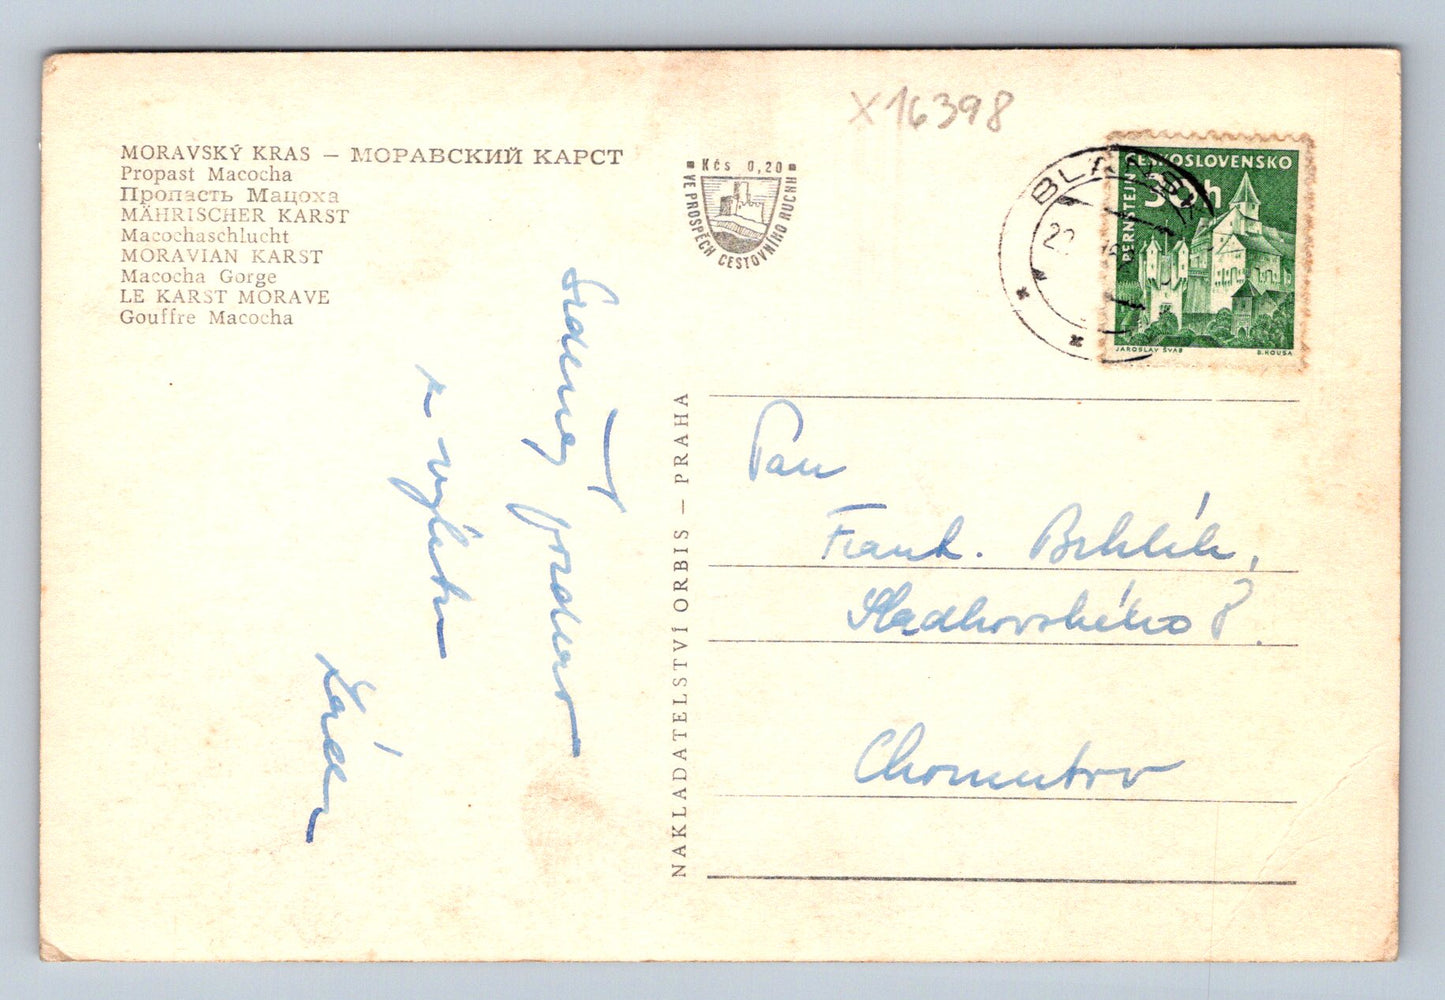 MORAVSKÝ KRAS – МОРАВСКИЙ КАРСТ
Propast Macocha
Пропасть Мацоха
MÄHRISCHER KARST
Macochaschlucht
MORAVIAN KARST
Macocha Gorge
LE KARST MORAVE
Gouffre Macocha
Srdečný pozdrav
z výletu
X16398
Kčs 0,20
VE PROSPĚCH CESTOVNÍHO RUCHU
NAKLADATELSTVÍ ORBIS — PRAHA
ČESKOSLOVENSKO
30h
JAROSLAV ŠVÁB
B. HOUSA
Pan
Frant.
Sladkovského
Chomutov